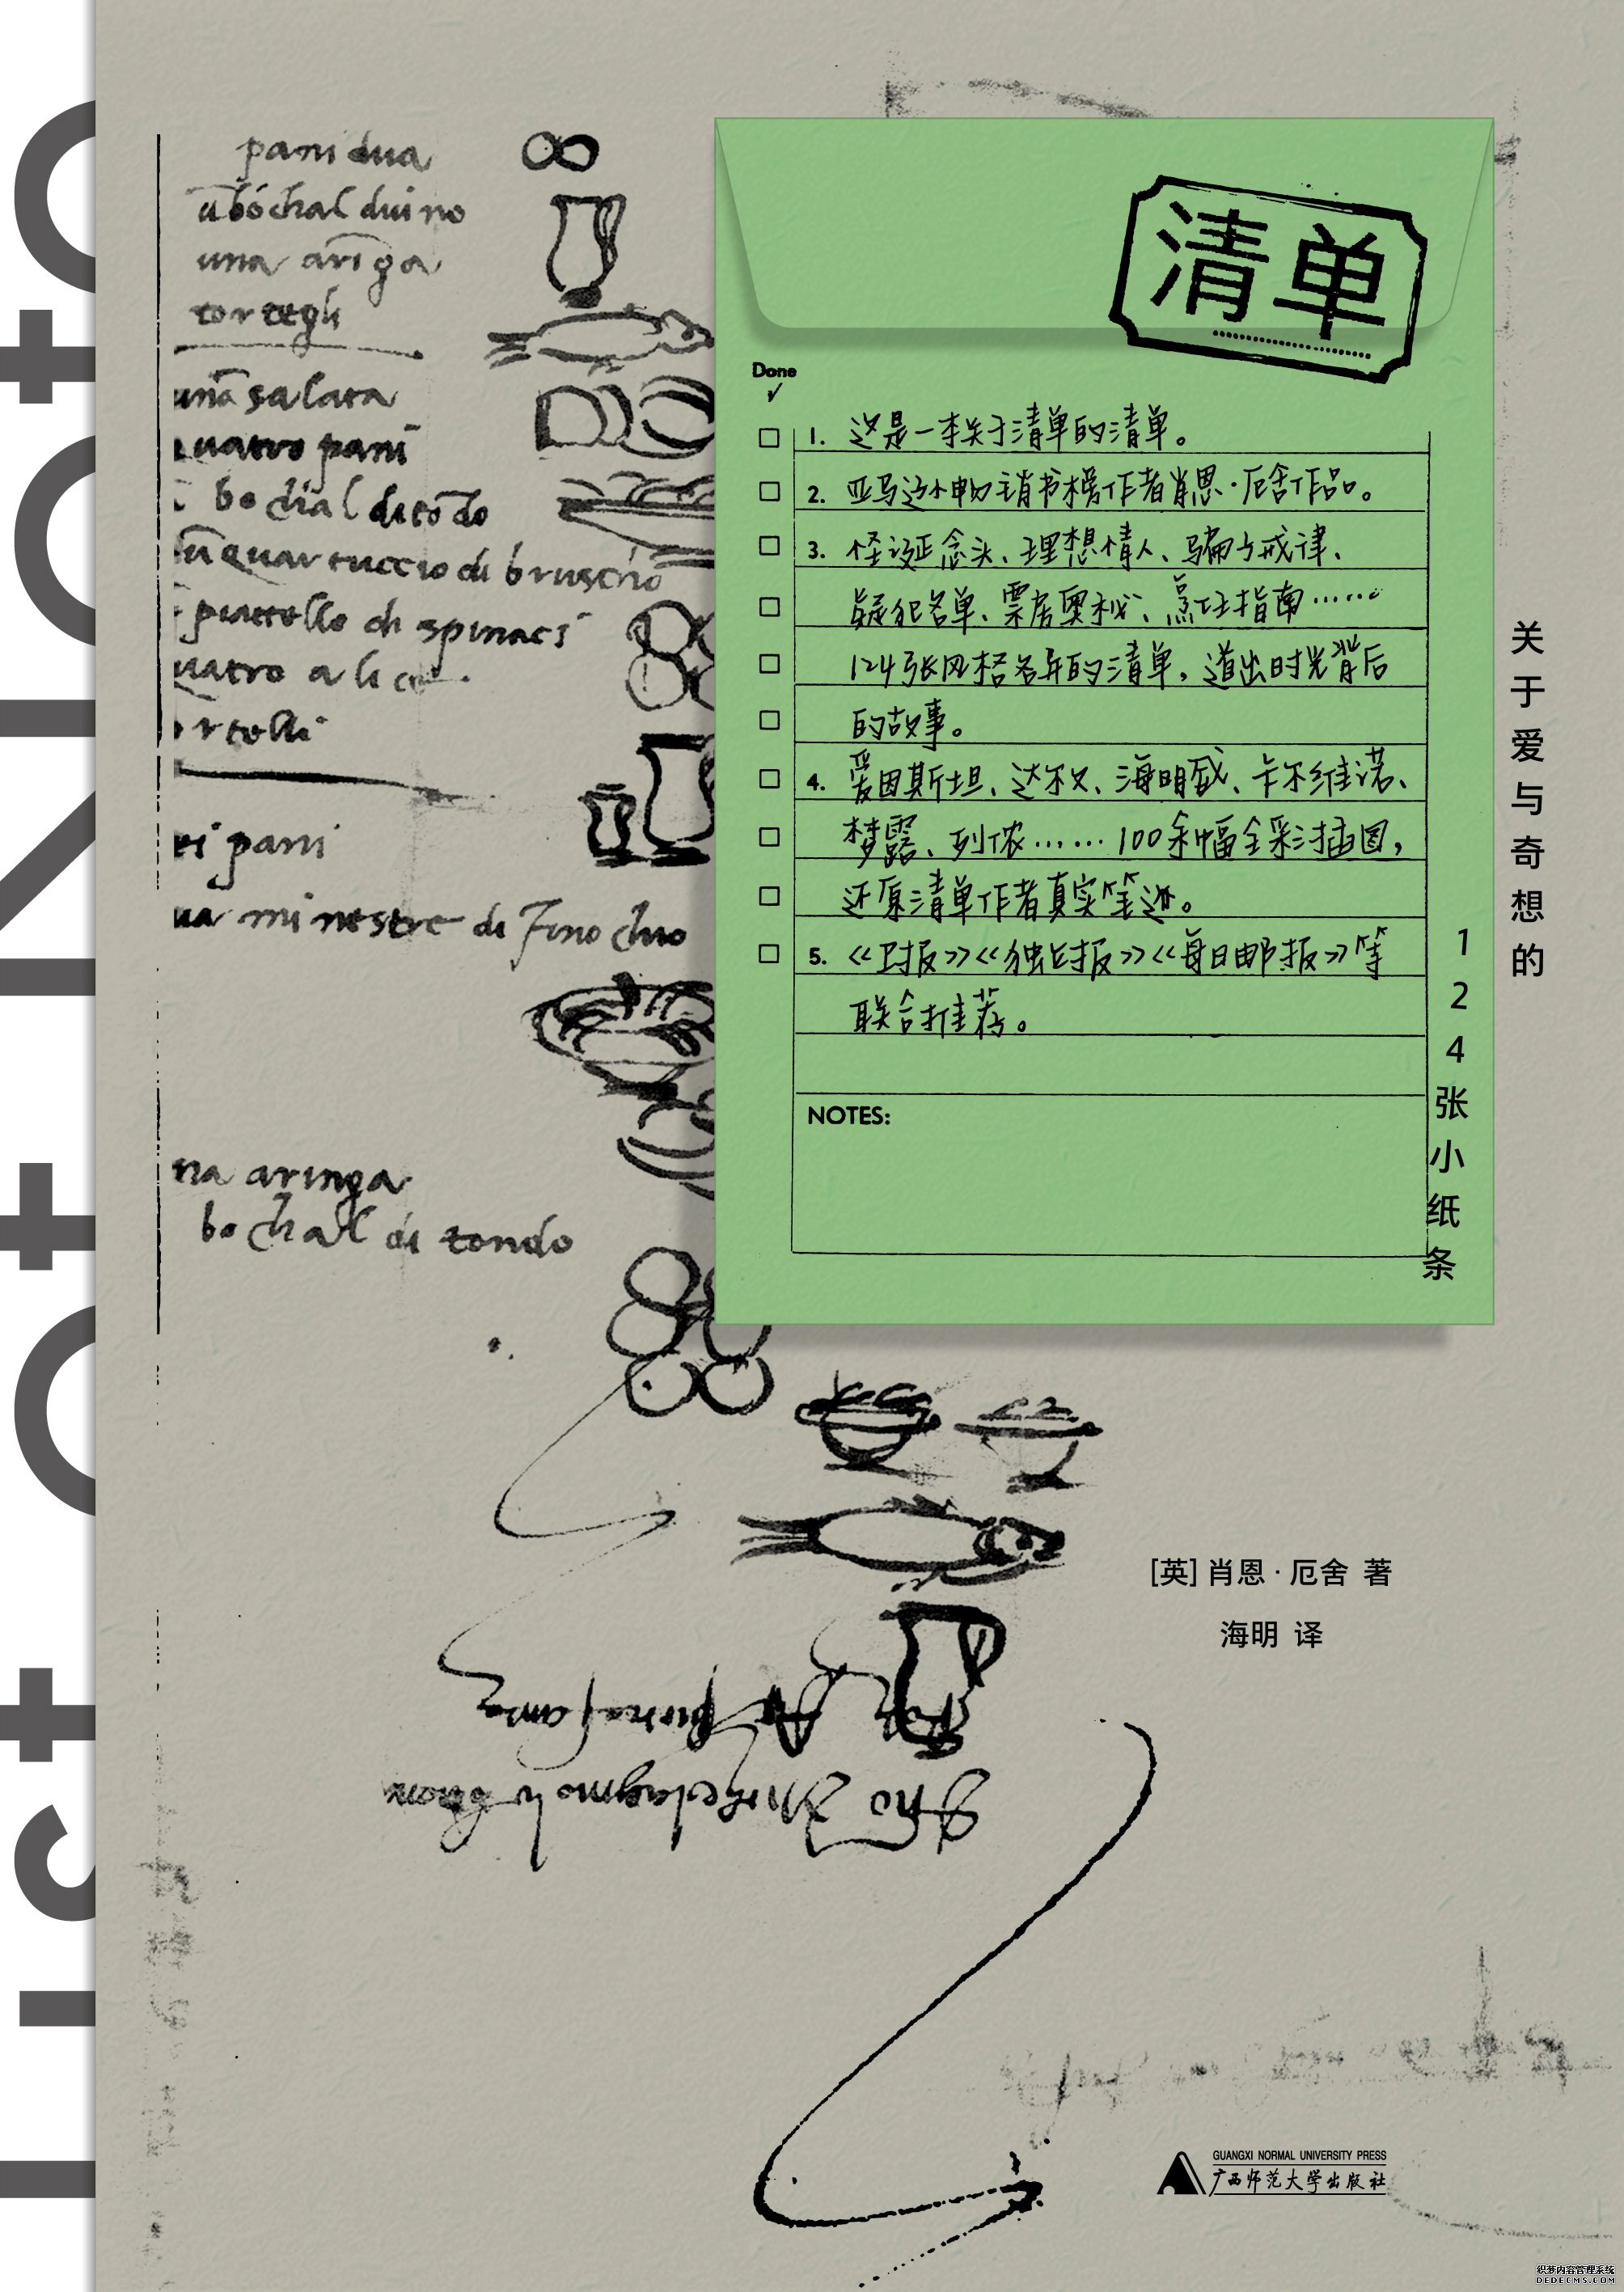 List OF NOTO
pani dua
u bóchal dui no
una aringa
tortegli
una salata
quatro pani
bochal di tōdo
ū quartuccio di bruschio
piattello di spinaci
quatro alice
ortelli
ei pani
ua minestre di finochio
na aringa
bochal di tondo
清单
Done
1. 这是一本关于清单的清单。
2. 亚马逊小申幻销书榜作者肖恩·厄舍作品。
3. 怪诞念头、理想情人、骗子戒律、
疑犯名单、票房奥秘、烹饪指南……
124张风格各异的清单，道出时光背后
的故事。
4. 爱因斯坦、达尔文、海明威、卡尔维诺、
梦露、列侬……100余幅全彩插图，
还原清单作者真实笔迹。
5. 《卫报》《独立报》《每日邮报》等
联合推荐。
NOTES:
关于爱与奇想的
124张小纸条
[英] 肖恩·厄舍 著
海明 译
GUANGXI NORMAL UNIVERSITY PRESS
广西师范大学出版社
织梦内容管理系统
DEDECMS.COM